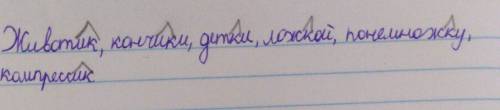 Животик, кончики, детки, ложкой, понемножку,
компрессик